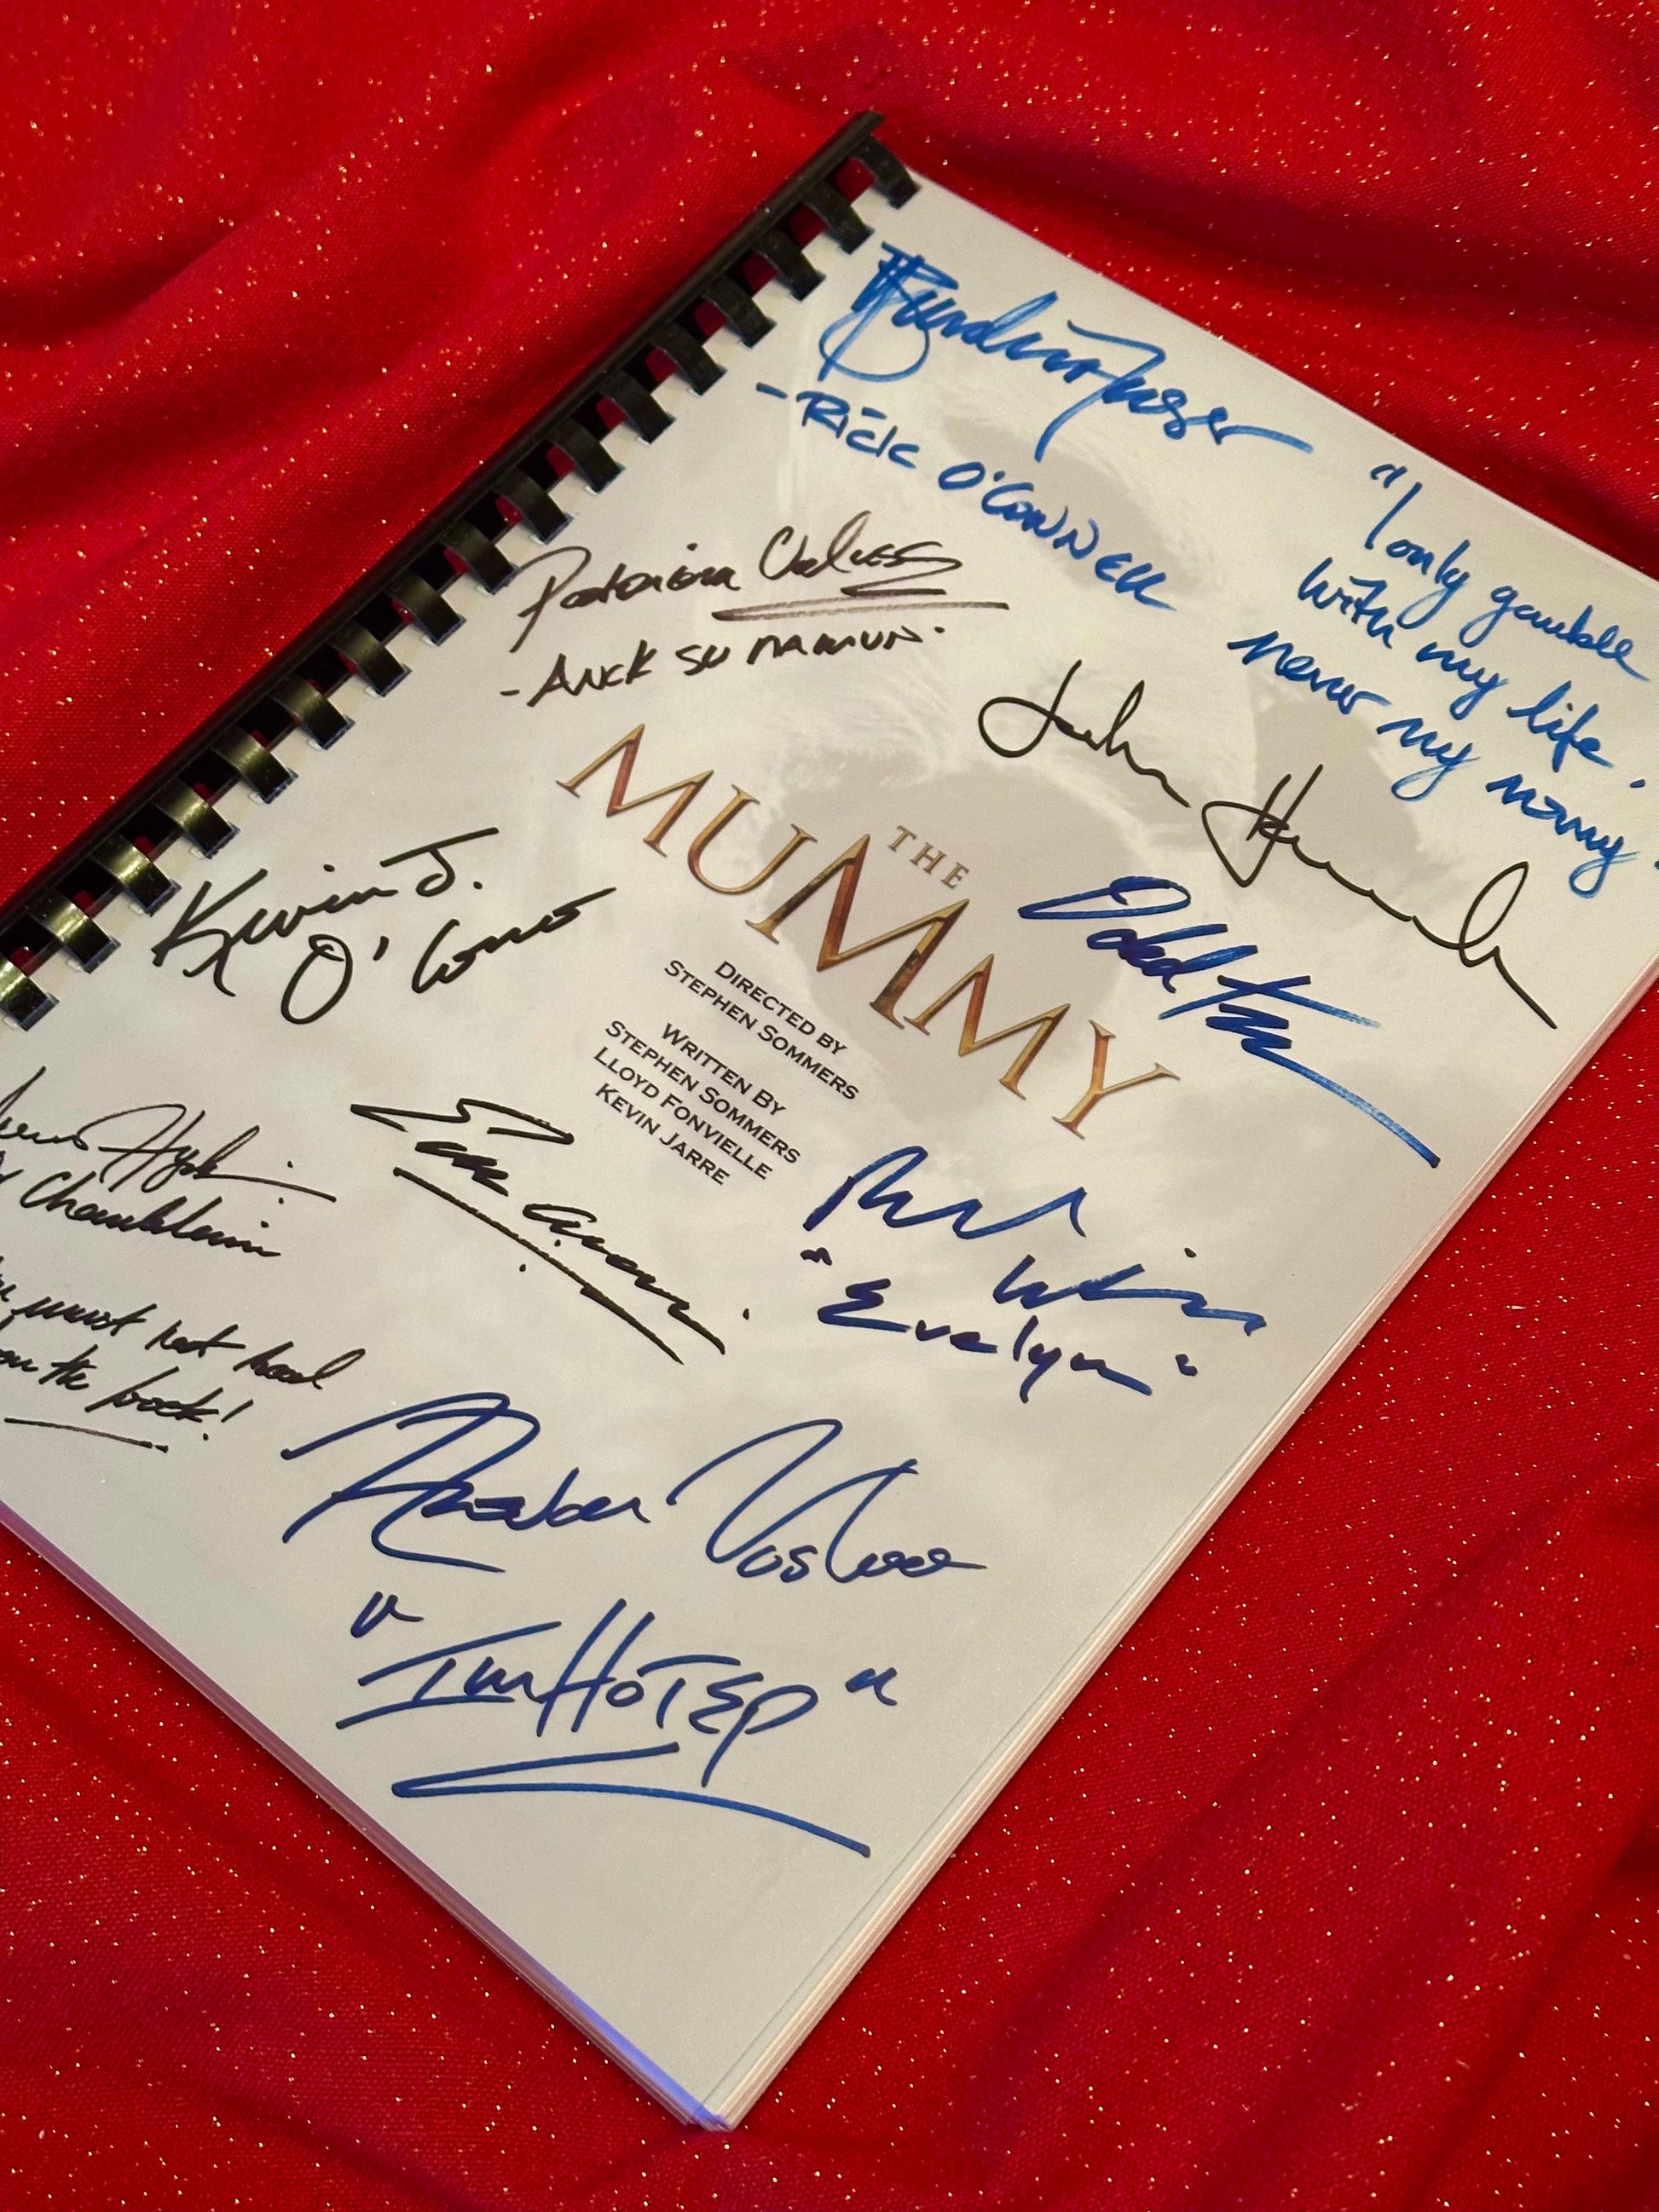 Brendan Fraser
-RICK O'CONNELL
"I only gamble
with my life.
never my money
Patricia Velasquez
-ANCK SU NAMUN.
John Hannah
THE
MUMMY
Oded Fehr
Kevin J.
O'Connor
DIRECTED BY
STEPHEN SOMMERS
WRITTEN BY
STEPHEN SOMMERS
LLOYD FONVIELLE
KEVIN JARRE
Hyde
Chamberlain
must not read
the book!
Rachel Weisz
"Evelyn"
Arnold Vosloo
"IMHOTEP"